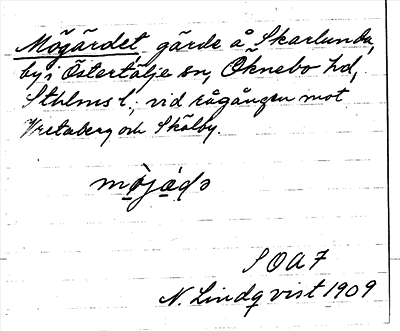 Mögärdet, gärde å Skarlunda,
by i Östertälje sn, Öknebo hd,
Sthlms l., vid rågången mot
Vretaberg och Skälby.
mö̀jäḍə
SOA 7
N. Lindqvist 1909